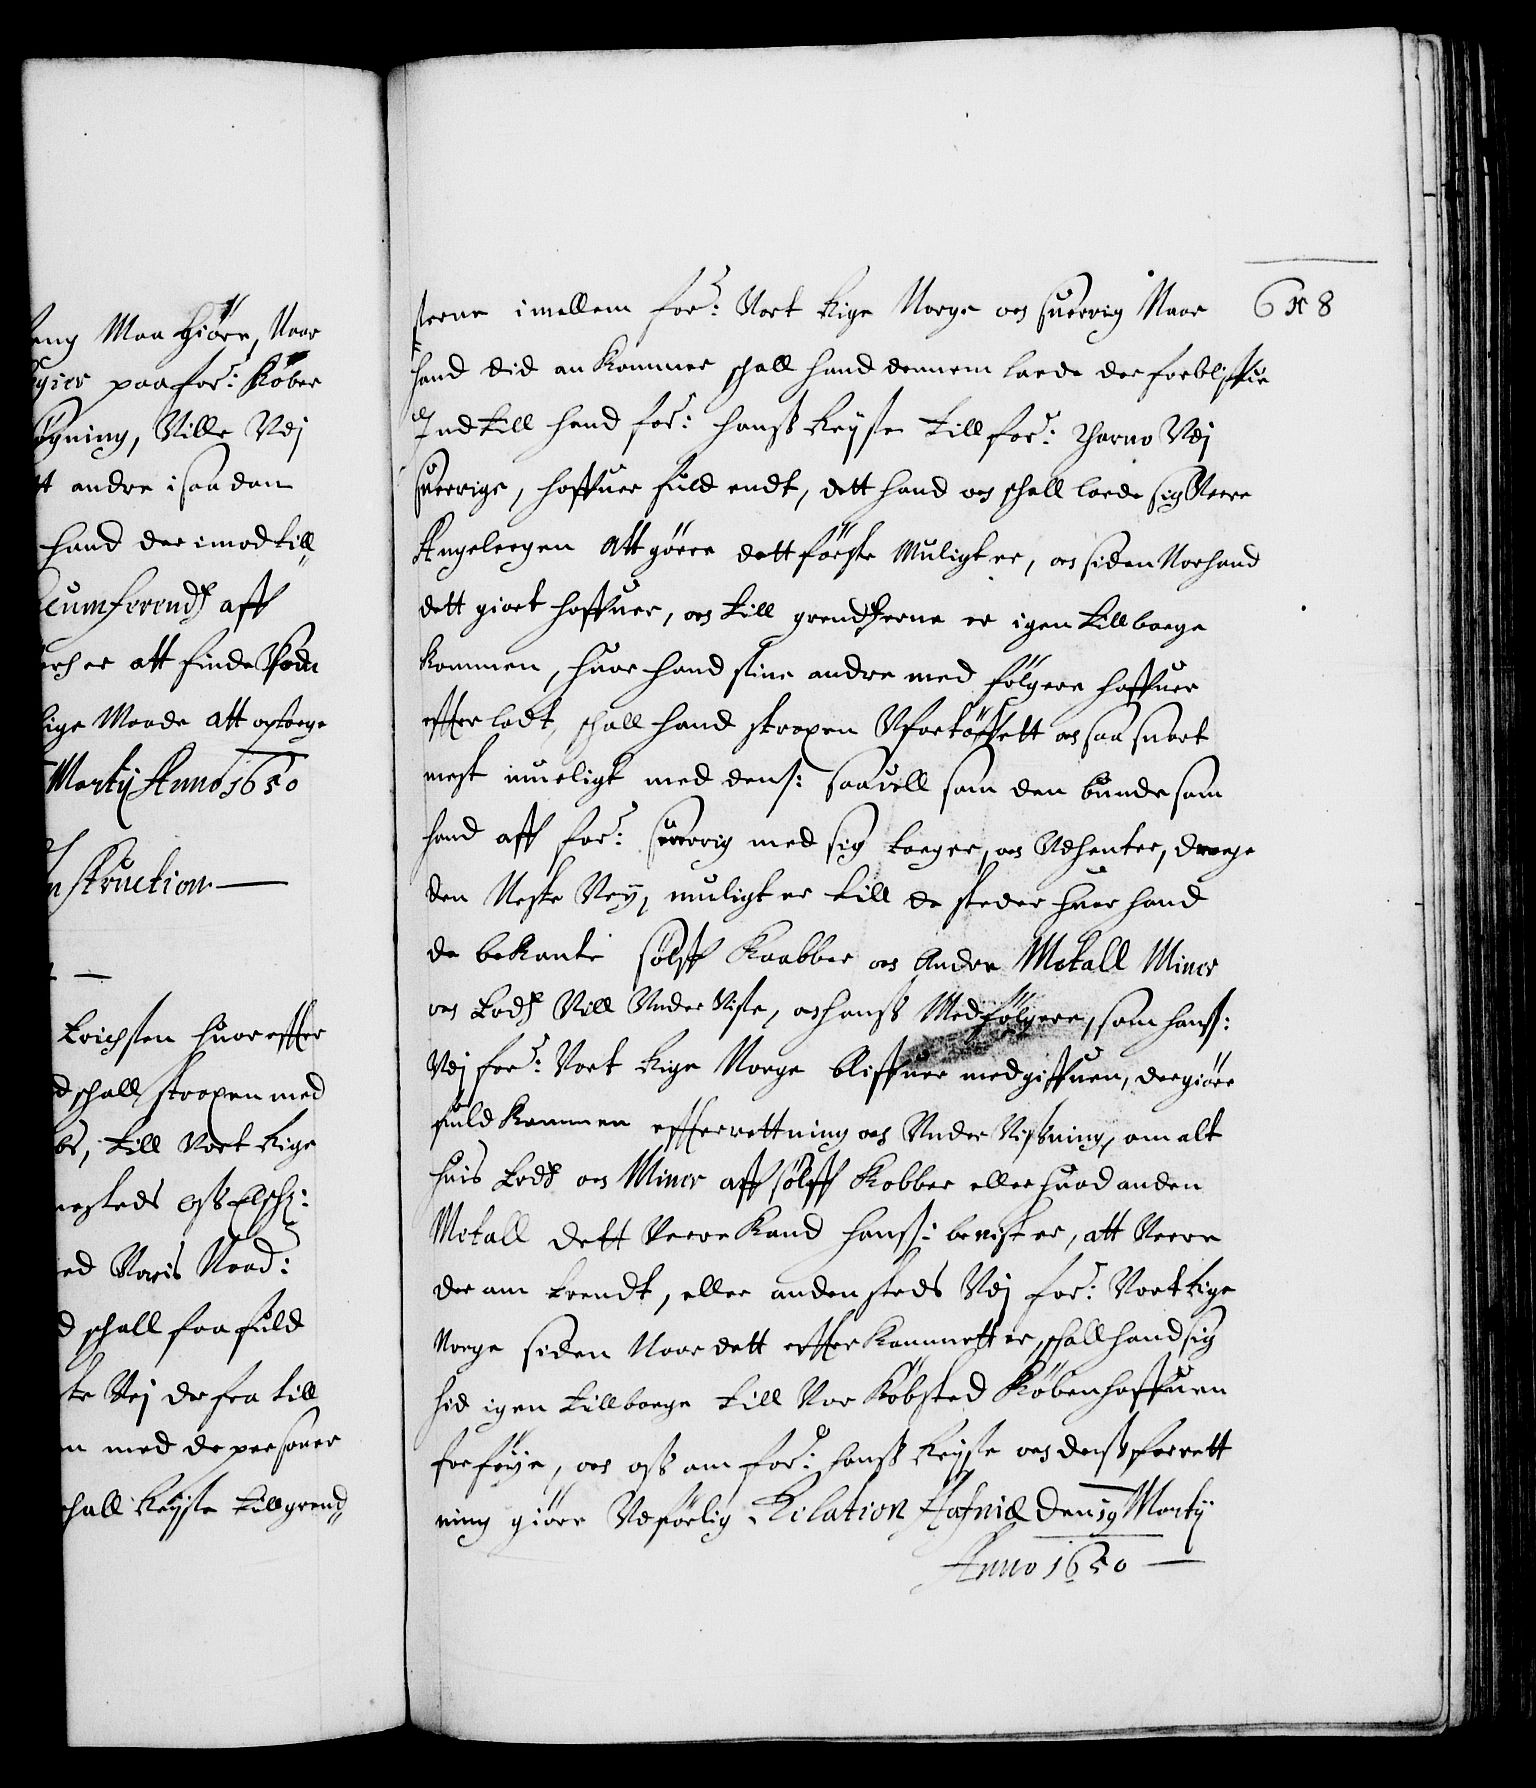 leng Maa Giøre, Naar
paa for: Kober
øgning, Ville Vdj
tt andre i saadan
hand der imod till
cumferendtz aff
er att finde
lige Maade att optage
Martij Anno 1650
nstruction
Erichsen huor effter
d schall straxen med
till Vort Rige
nesteds oss Elsch:
ed Voris Naad:
d schall faa fuld
te Vej der fra till
n med de personer
schall Reyse till grend
658
serne imellem for: Vort Rige Norge oc Suerrig Naar
hand did ankommer schall hand dennem lade der forbliffue
Ind till hand for: hanss Reyse till for: Vdj
Suerrige, haffuer fuldendt, dett hand oc schall lade sig Vere
Angelegen att gøre dett første Muligt er, oc siden Nar hand
dett giort haffuer, oc till grendtzerne er igen tillbage
kommen, huor hand sine andre med følgere haffuer
effterladt, schall hand straxen Vfortøffuett oc saa snart
mest mueligt med dens: saauell som den bunde som
hand aff for: Suerrig med sig tager, oc Vdhenter, drage
den Neste Vey, muligt er till de steder huor hand
de bekante Sølff Kaabber oc Andre Metall Miner
oc Lodz Vill Vnderviise, oc hanss Medfølgere, som hans:
Vdj for: Vort Rige Norge bliffuer medgiffuen, der giøre
fuldkommen effterrettning oc Vnder Viissning, om alt
huis Lodz oc Miner aff sølff Kobber eller huad anden
Metall dett Vere kand hans: beuist er, att Vere
der om trendt, eller andensteds Vdj for: Vort Rige
Norge siden Naar dett effterkommett er, schall hand sig
hid igen tillbage till Vor Købsted Københaffuen
forføye, oc oss om for: hanss Reyse oc dess forrett
ning giøre Vdførlig Relation Hafniæ den 19 Martij
Anno 1650